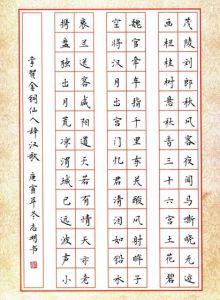 茂陵刘郎秋风客夜闻马嘶晓无迹
画栏桂树悬秋香三十六宫土花碧
魏官牵车指千里东关酸风射眸子
空将汉月出宫门忆君清泪如铅水
衰兰送客咸阳道天若有情天亦老
携盘独出月荒凉渭城已远波声小
李贺金铜仙人辞汉歌 庚寅年冬志明书